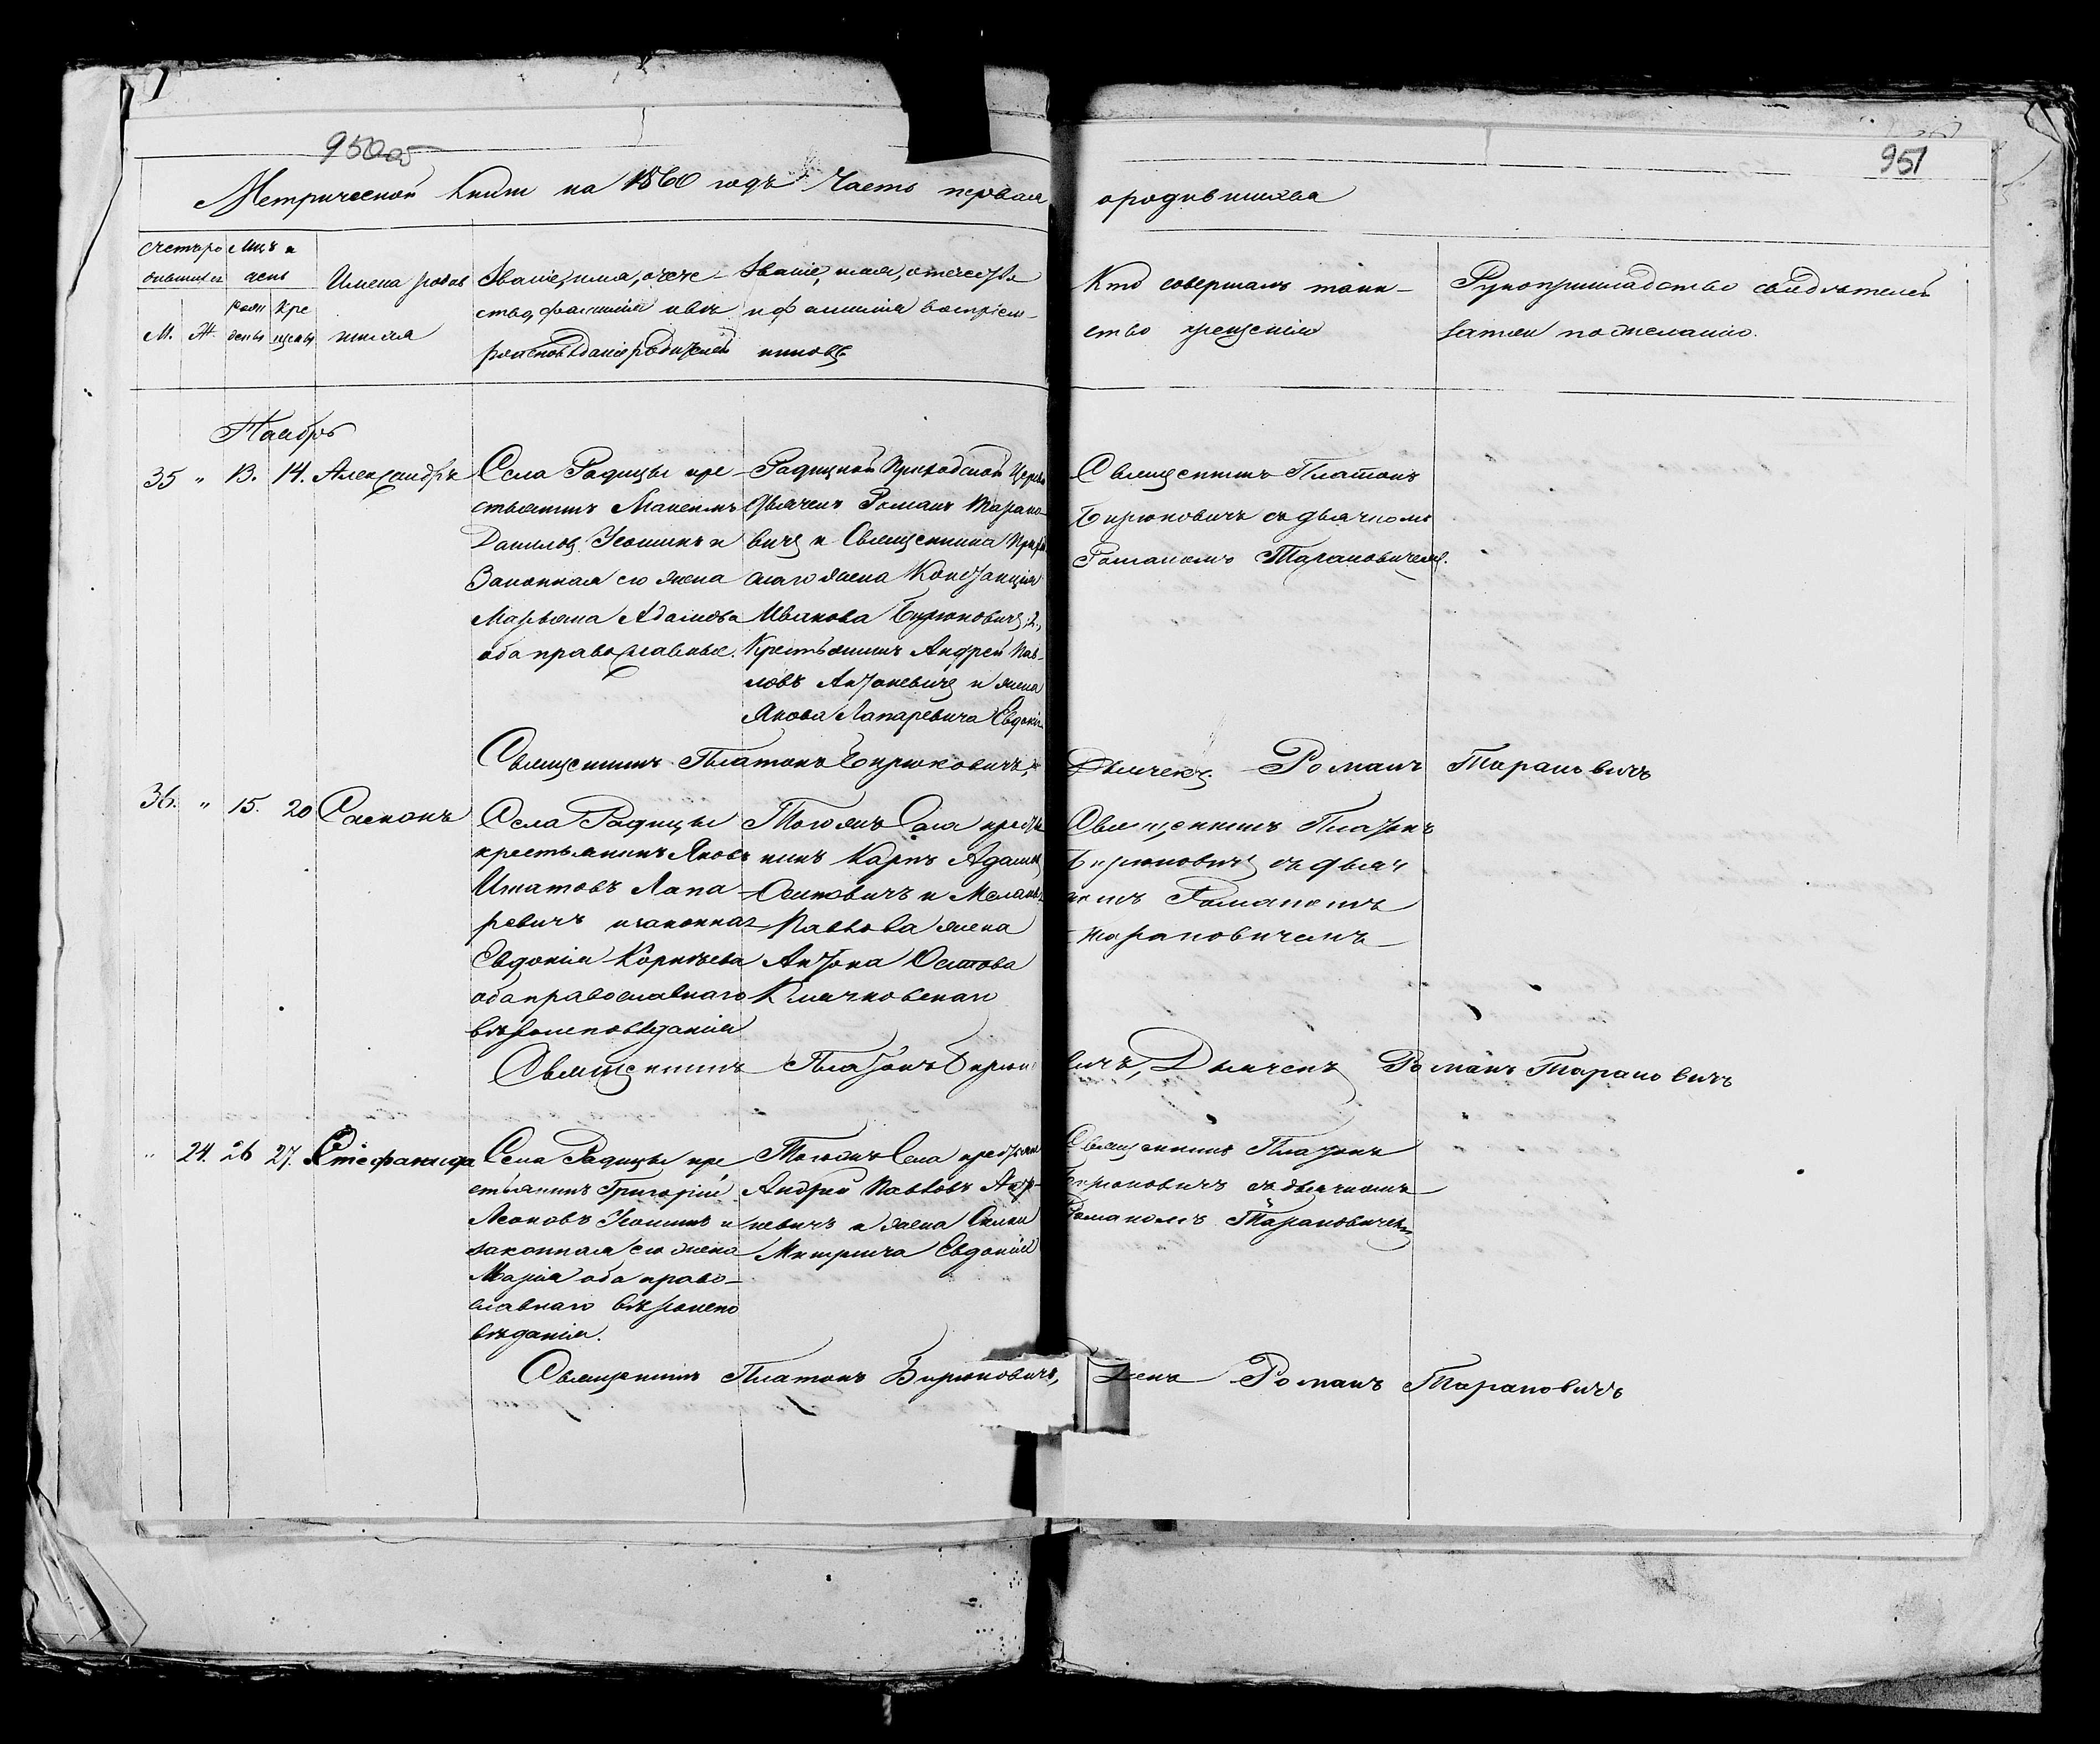 950об
951
Метрической книги на 1860 годъ Часть первая
ородившихся
Счетъ ро Мцъ и
дившихся день
Имена родив
шихся
Званіе, имя, отече-
ство, фамилія и вѣ
роисповѣданіе родителей
Званіе, имя, отечество
и фамилія воспріем-
никовъ
Кто совершалъ таин-
ство крещенія
Рукоприкладство свидѣтелей
записи по желанію.
М. Ж. рож денія кре щенія
Ноябрь
35 " 13. 14. Александръ
Села Радицы кре-
стьянинъ Максимъ
Даниловъ Усошинъ и
Законная его жена
Марьяна Адамова
оба православные.
Радицкой Приходской Церкви
Дьячекъ Романъ Тарано-
вичъ и Священника
жена Констанція
Иванова Бирюковичъ, 2.,
Крестьянинъ Андрей Пав-
ловъ Антоневичъ и жена
Якова Лапаревича Евдокія
Священникъ Платонъ
Бирюковичъ съ дьячкомъ
Романомъ Тарановичемъ.
Священникъ Платонъ Бирюковичъ, Дьячекъ Романъ Тарановичъ
36. " 15. 20 Саспонъ
Села Радицы
крестьянинъ Яковъ
Игнатовъ Лапа-
ревичъ и законная
Евдокія Корнѣева
оба православнаго
вѣроисповѣданія
Того жъ Села крестья
нинъ Карпъ Адамовъ
Осиповичъ и Меланья
Павлова жена
Антона Осипова
Клячковскаго
Священникъ Платонъ
Бирюковичъ съ дьяч
комъ Романомъ
Тарановичемъ
Священникъ Платонъ Бирюковичъ, Дьячекъ Романъ Тарановичъ
" 24. 26 27. Стефанида
Села Радицы кре
стьянинъ Григорій
Леоновъ Усошинъ и
законная его жена
Марія оба право-
славнаго вѣроиспо
вѣданія.
Того жъ Села крестьян
Андрей Павловъ Анто-
невичъ и жена
Митрича Евдокія
Священникъ Платонъ
Бирюковичъ съ дьячкомъ
Романомъ Тарановичемъ
Священникъ Платонъ Бирюковичъ, Романъ Тарановичъ